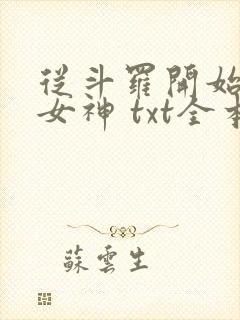 從斗羅開始
女神 txt全本
蘇雲生